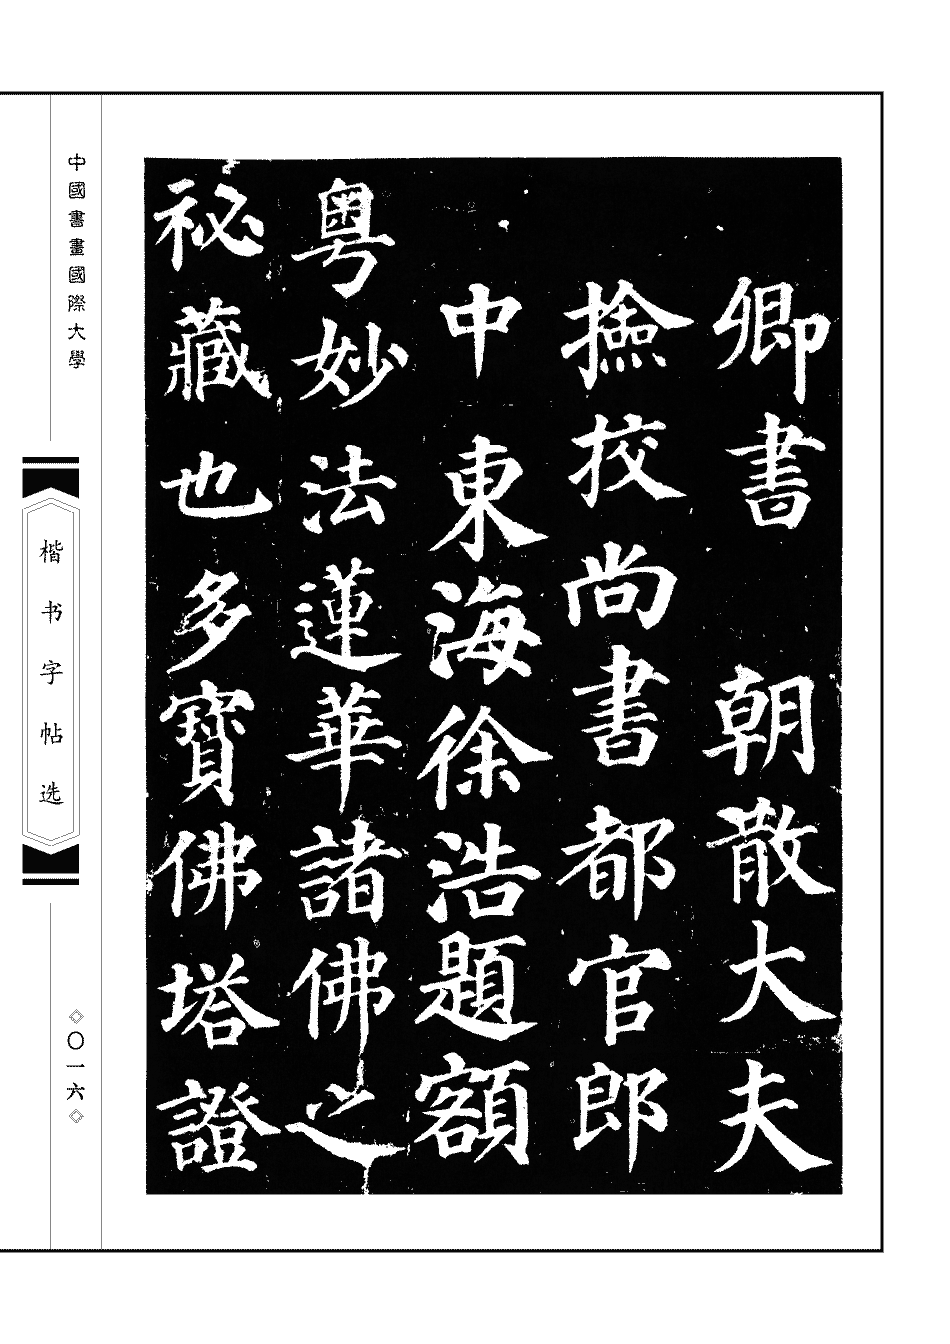 卿書 朝散大夫
撿挍尚書都官郎
中東海徐浩題額
粤妙法蓮華諸佛之
祕藏也多寶佛塔證
中國書畫國際大學
楷书字帖选
〇一六